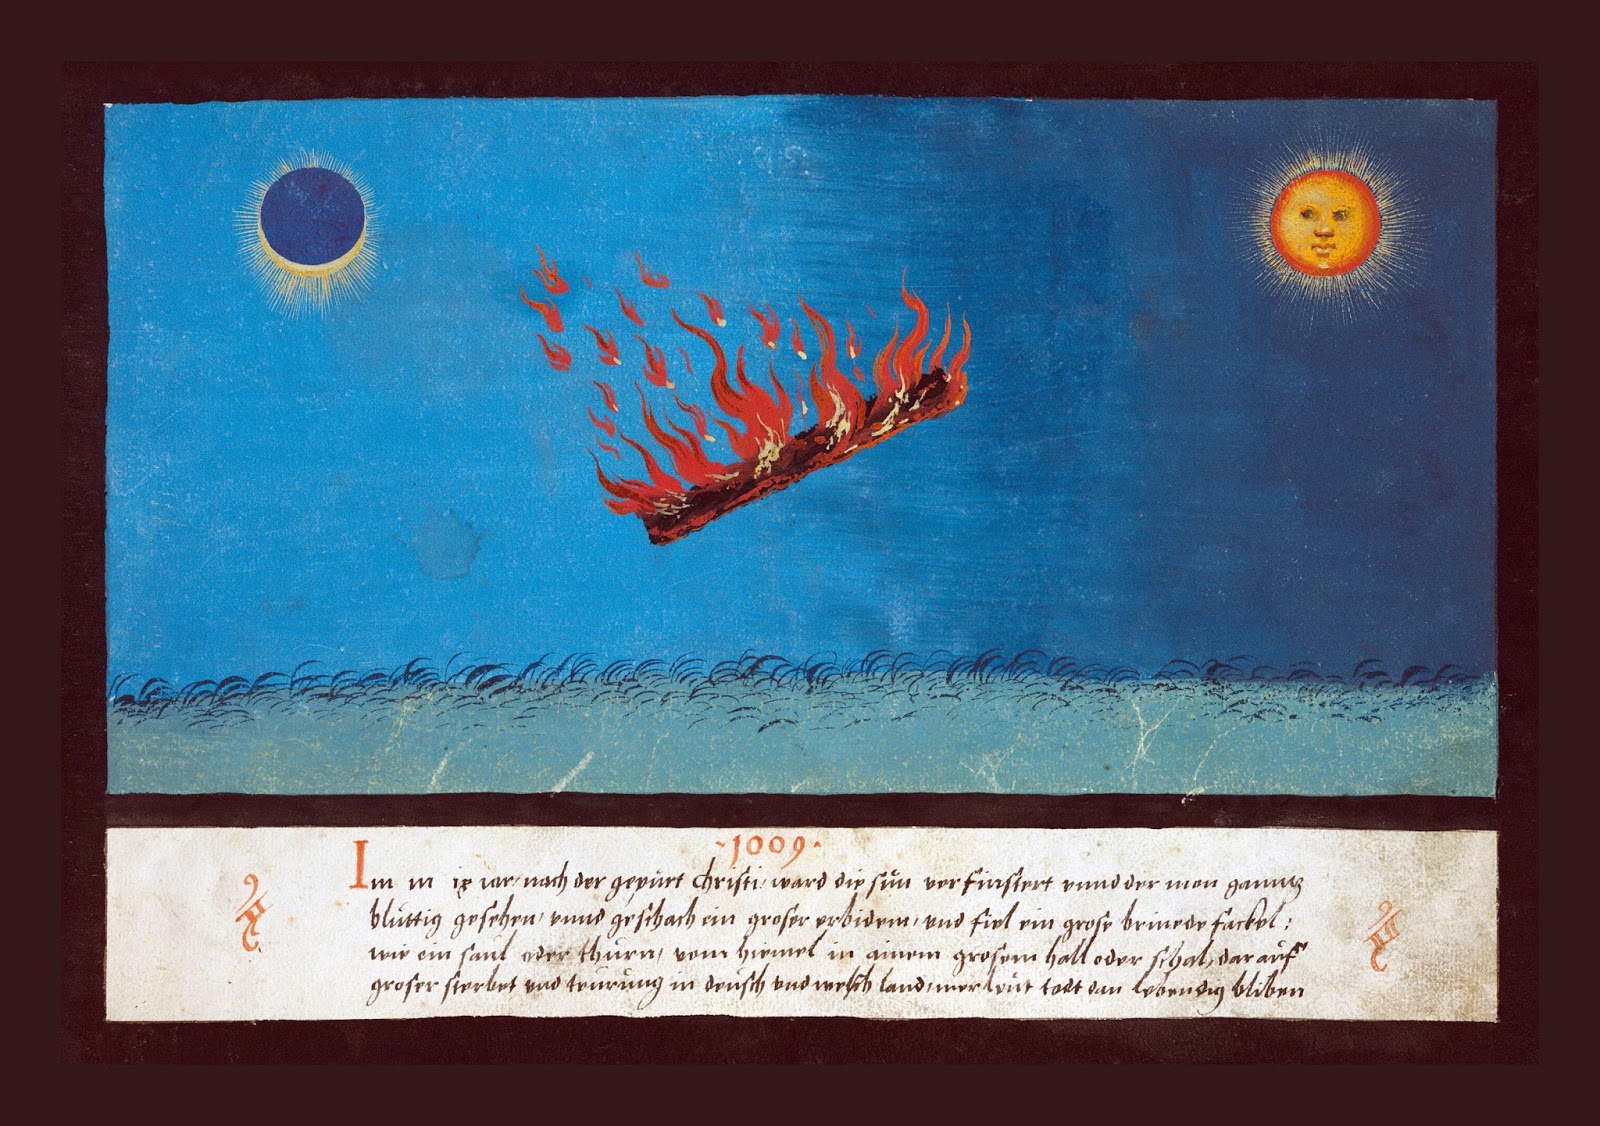 ·1009·
Im m ix iar, nach der gepürt Christi, ward die sün verfinstert vnnd der mon ganntz
blüttig gesehen, vnnd geschach ein groser erbidem, vnd fiel ein grose brinede fackel:
wie ein saül oder thürn, vom hiemel in ainem grosem hall oder schal, dar aüf
groser sterbet vnd teürüng in deüsch vnd welsch land, mer leüt todt dan lebendig bliben